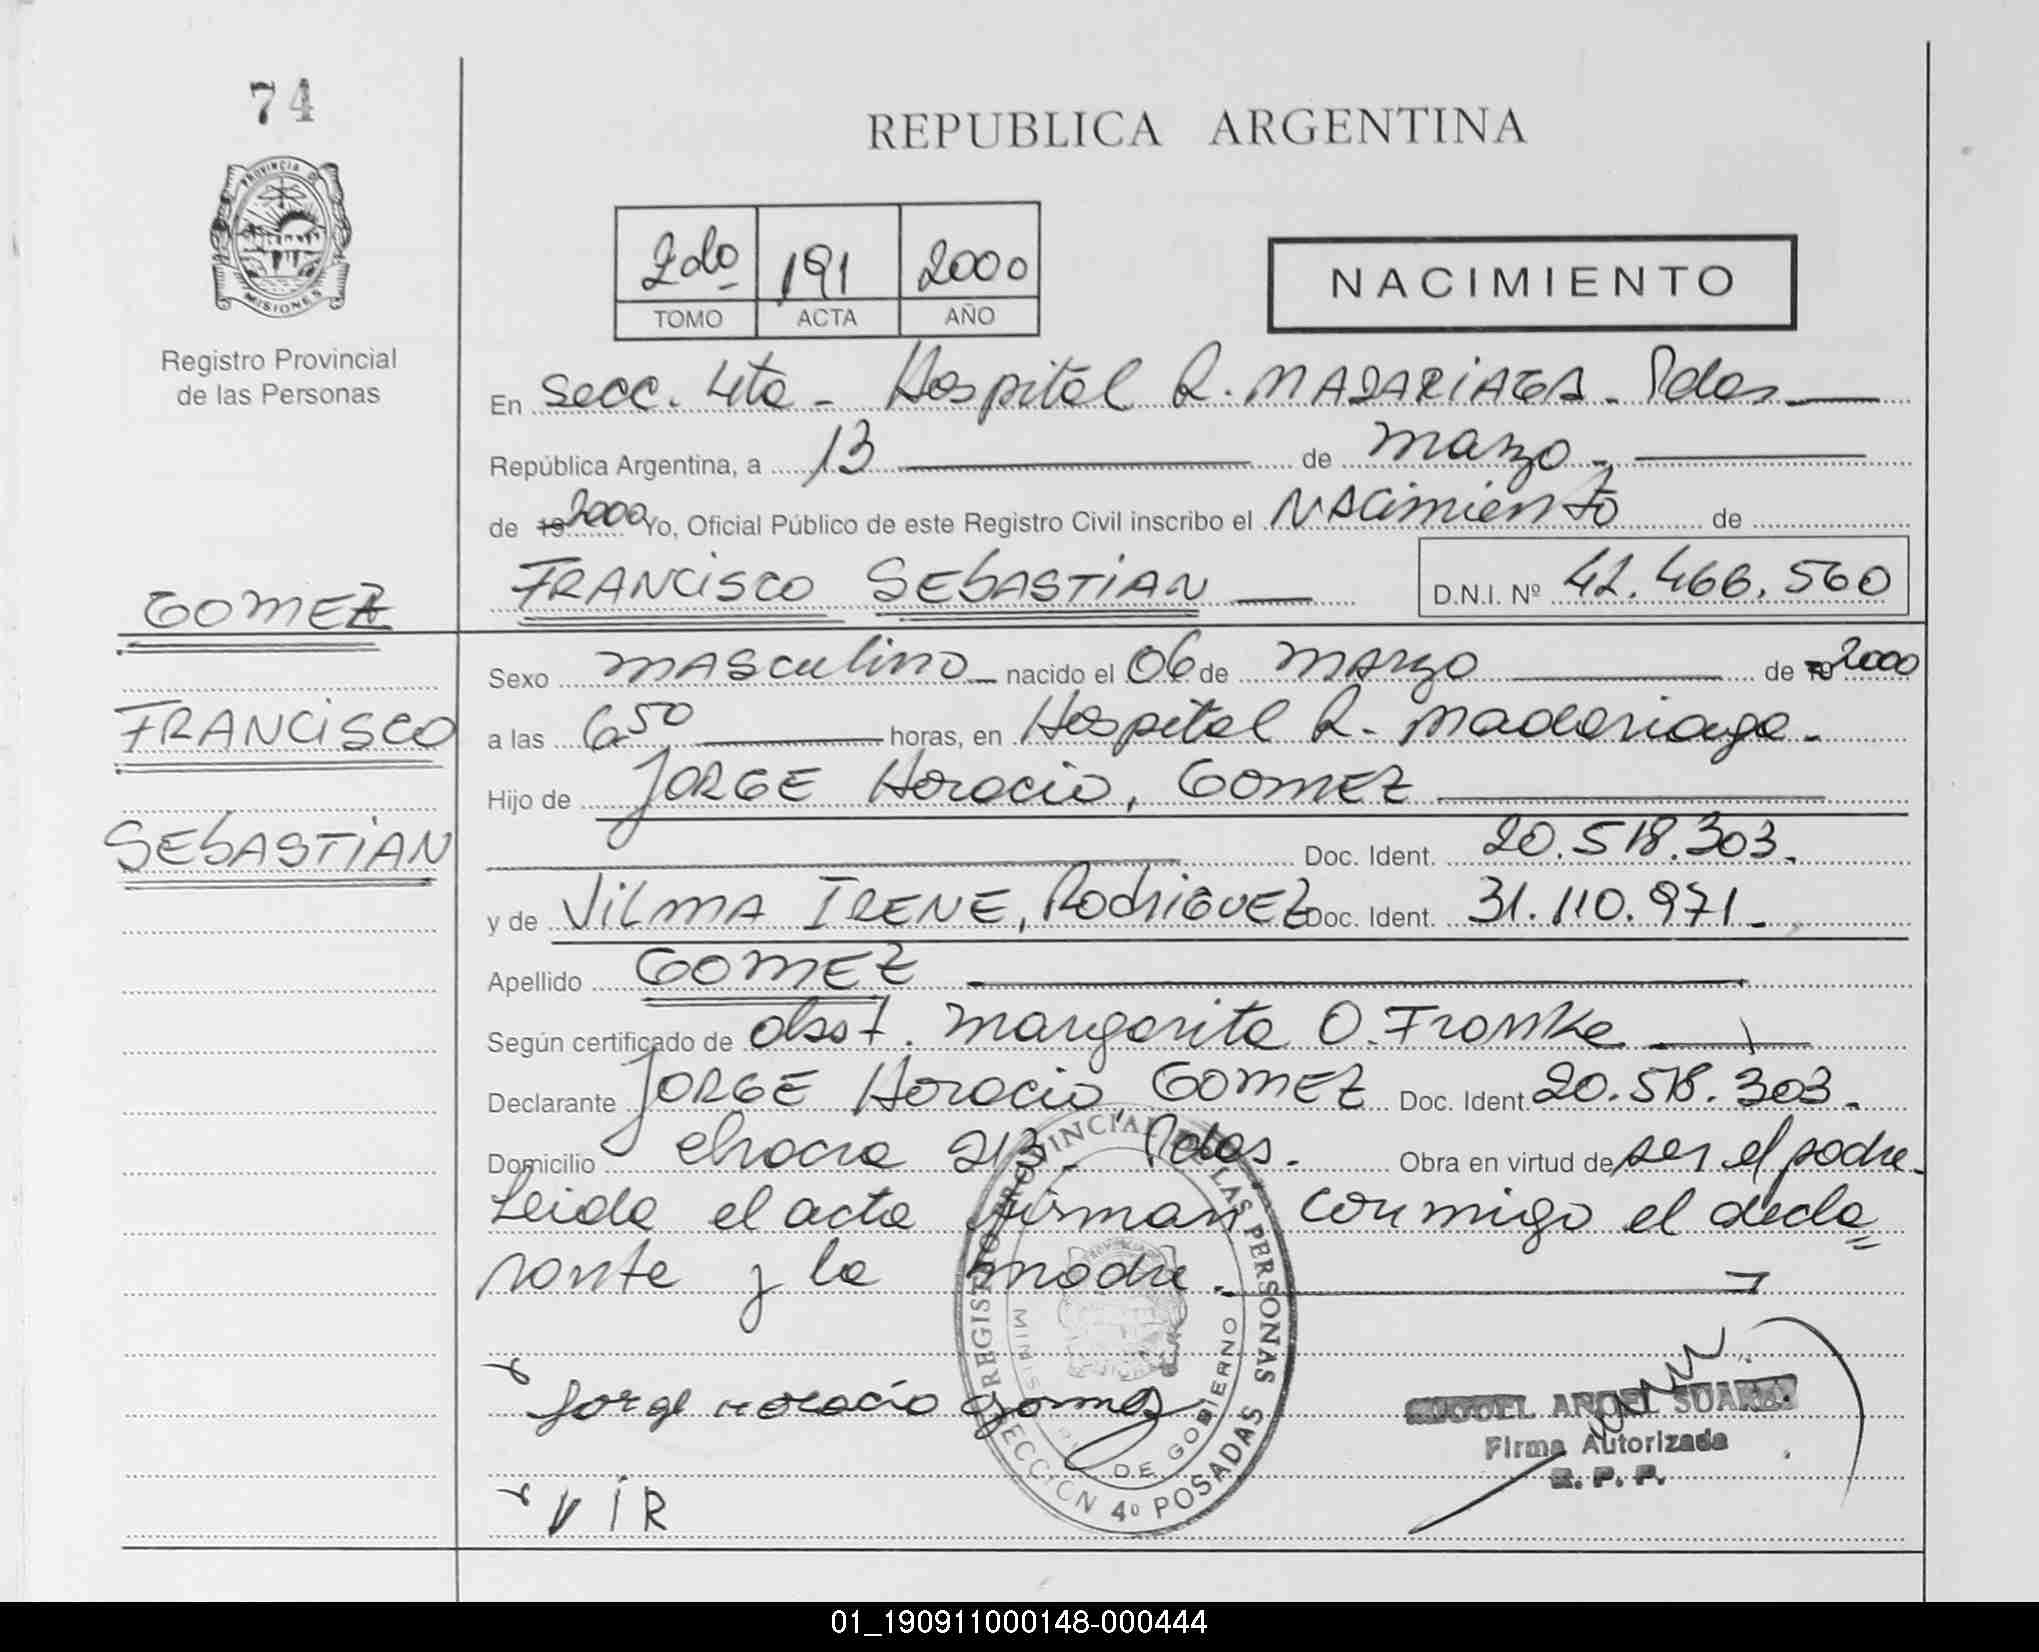 74
PROVINCIA DE
MISIONES
Registro Provincial
de las Personas
REPUBLICA ARGENTINA
2do 191 2000
TOMO ACTA AÑO
NACIMIENTO
En Secc. 4ta - Hospital R. MADARIAGA - Pdas
República Argentina, a 13 de marzo
de 19 2000 Yo, Oficial Público de este Registro Civil inscribo el NAcimiento de
FRANCISCO SEBASTIAN D.N.I. Nº 42.466.560
GOMEZ
FRANCISCO
SEBASTIAN
Sexo mASculino nacido el 06 de mARzo de 19 2000
a las 6 50 horas, en Hospital R. Madariaga.
Hijo de JORGE Horacio, GOMEZ
Doc. Ident. 20.518.303.
y de VilmA IRENE, RodriGUEZ Doc. Ident. 31.110.971.
Apellido GOMEZ
Según certificado de obst. Margarita O. Franke
Declarante JORGE Horacio GOMEZ Doc. Ident. 20.518.303.
Domicilio chacra 213. Pdas. Obra en virtud de ser el padre.
Leida el acta firman conmigo el decla
rante y la madre.
REGISTRO PROVINCIAL DE LAS PERSONAS
DE GOBIERNO
SECCION 4º POSADAS
Jorge Horacio Gomez
MIGUEL ANGEL SUAREZ
Firma Autorizada
R. P. P.
V I R
01_190911000148-000444